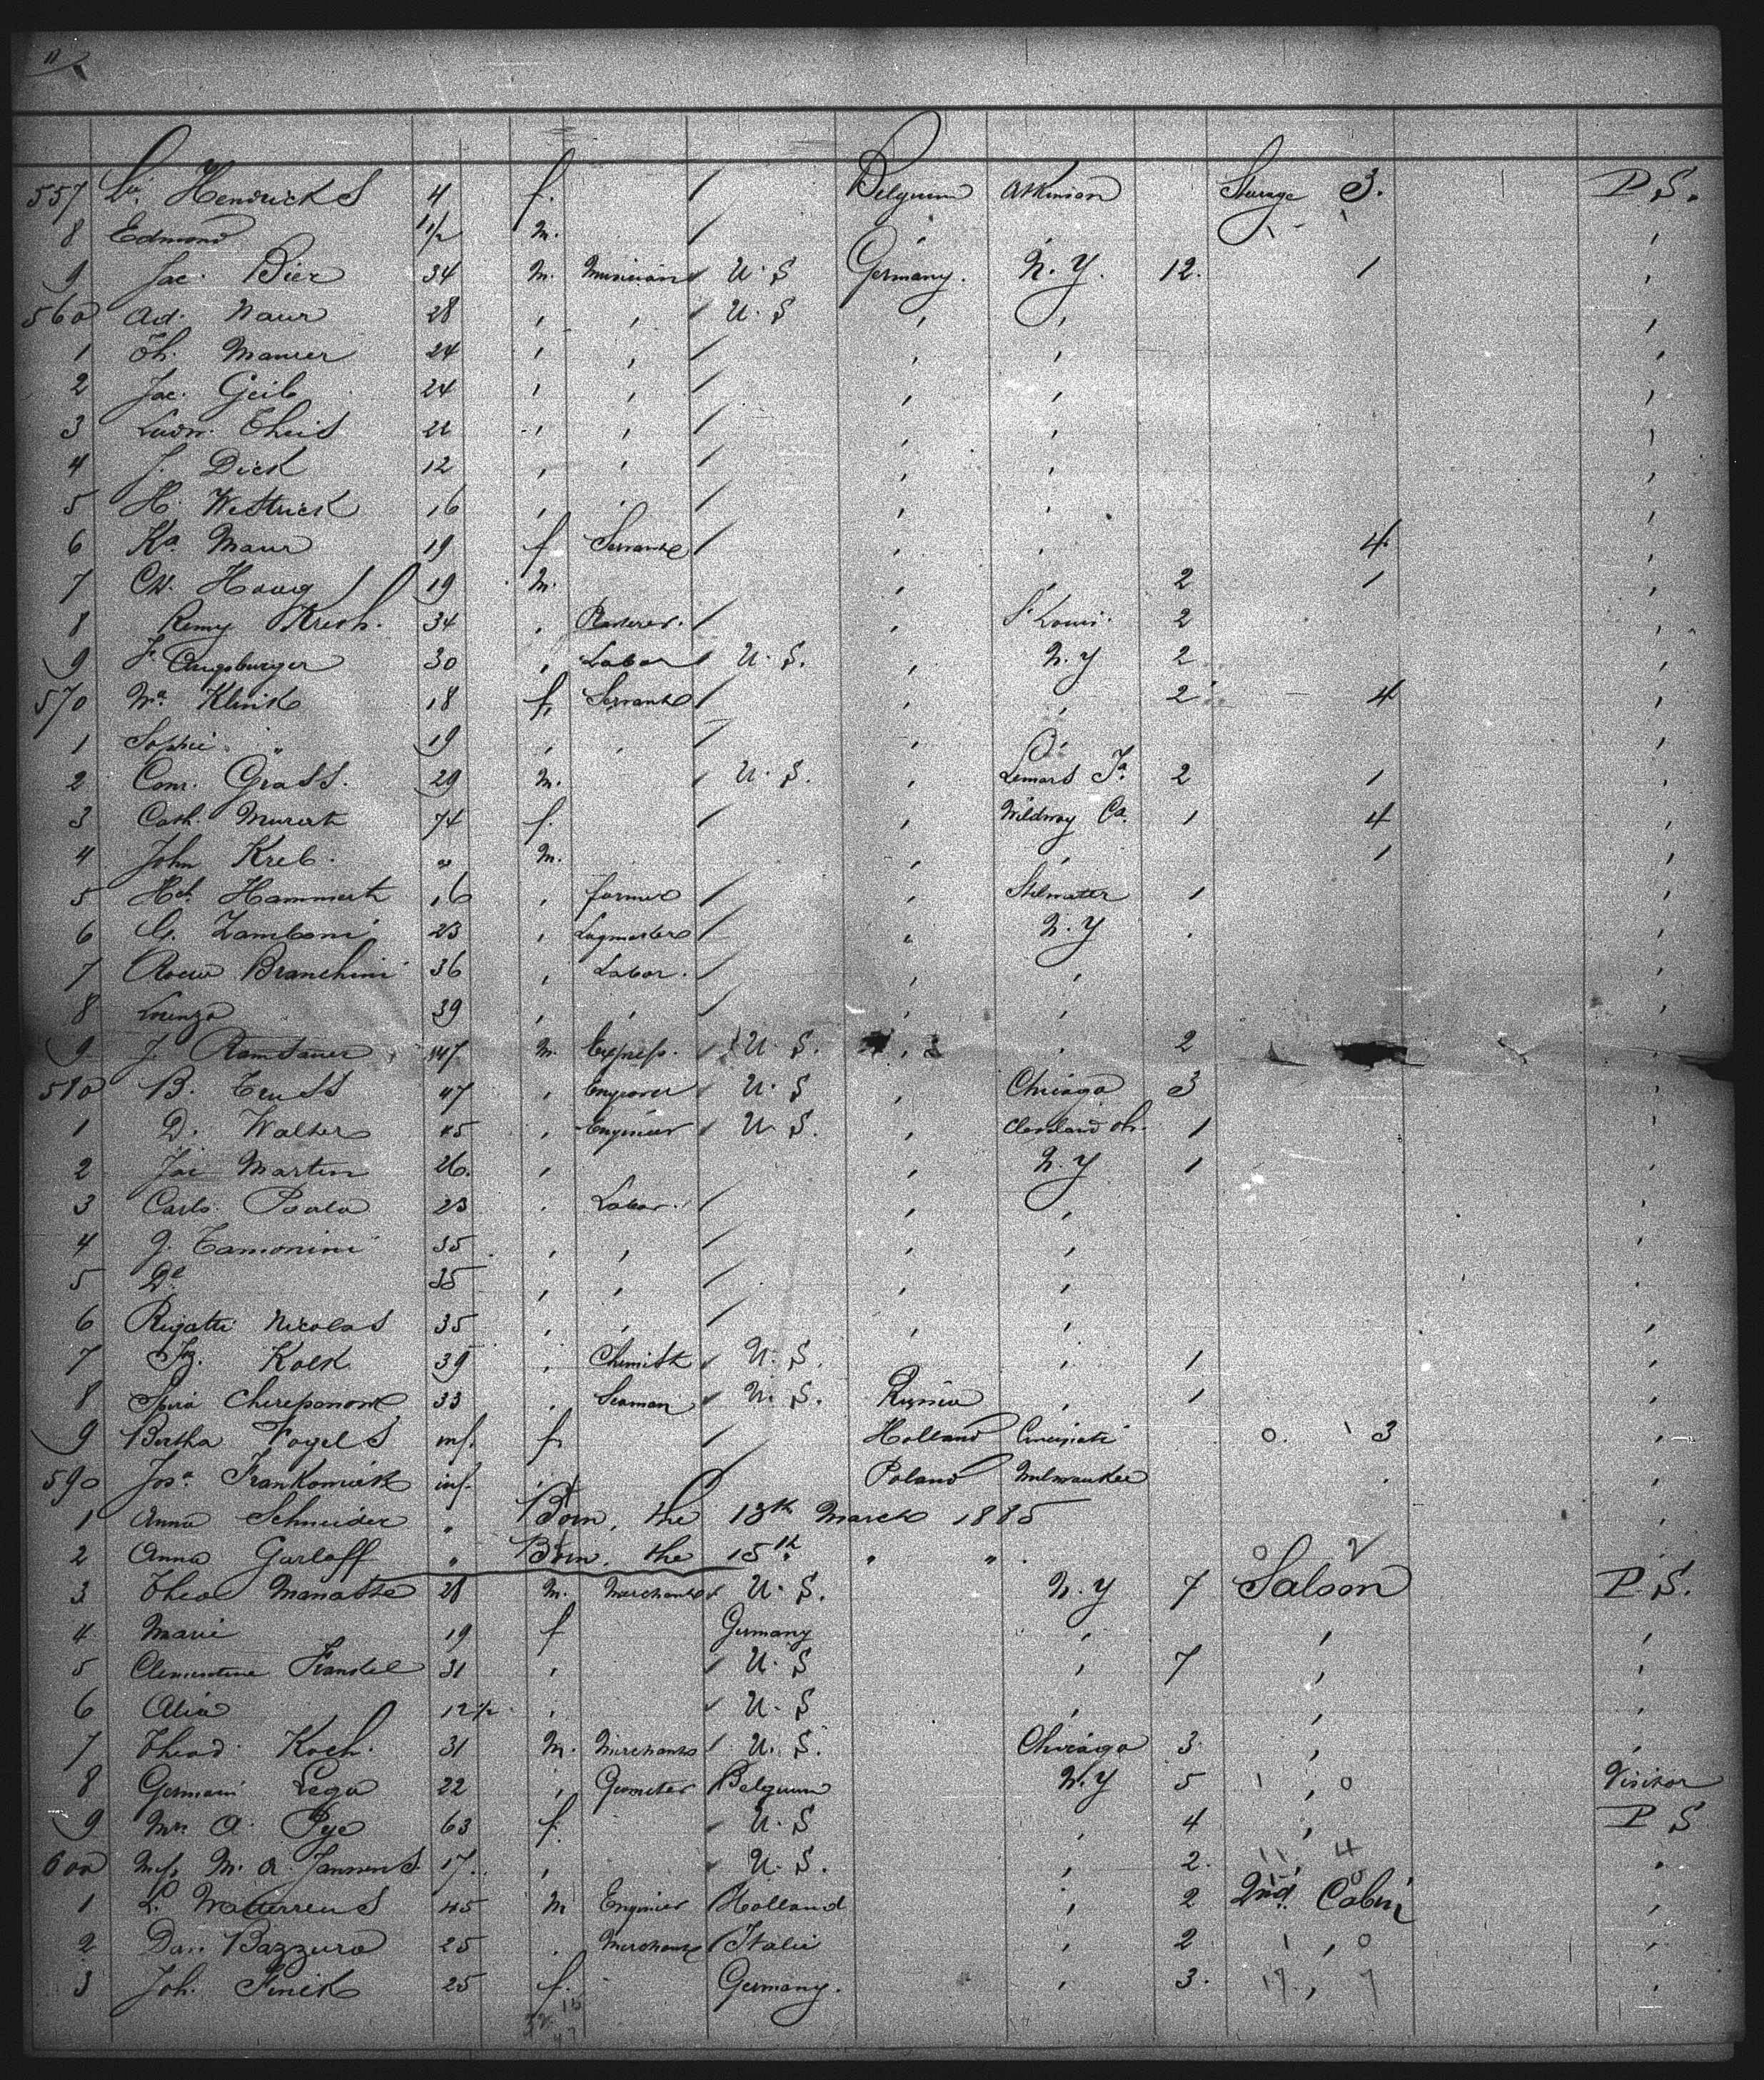 557 Lu. Hendricks 4 f. / Belgium Atkinson Sterage 3. P. S.
8 Edmond 1 1/2 m. / , ,
9 Jac. Bier 34 M. Musician U. S Germany. N. Y. 12. 1 ,
560 Ad. Naur 28 , , U. S , , ,
1 Th. Maurer 24 , , / , , ,
2 Jac. Geib 24 , , / , , ,
3 Ludw. Theis 22 , , / , , ,
4 J. Dick 12 , , / , , ,
5 H. Westrick 16 , , / , , ,
6 Ka. Maur 19 f Servant / , , 4 ,
7 Ch. Haug 19 M. , , 2 1 ,
8 Remy Kresh. 34 , Plasterer. / , St Louis. 2 ,
9 F. Augsburger 30 , Labor U. S. , N. Y 2 ,
570 Ma. Klink 18 f, Servant / , , 2 4 ,
1 Sophie " 19 , , / , , ,
2 Conr. Grass. 29 M. U. S. , Lemars Ja. 2 1 ,
3 Cath. 74 f. / , Ca. 1 4 ,
4 John Kreb. M. , , 1 ,
5 Hch. Hammerth 16 , farmer / , Stilwatter 1 ,
6 G. Zamboni 23 , / , N. Y ,
7 Branchini 36 , Labor. / , , ,
8 Lorenzo 39 , , / , , ,
9 J. Ramsauer 47 M. U. S. , , 2 ,
580 B. Teuss 47 , Engraver U. S , Chicago 3 ,
1 D. Walker 45 , Engineer U. S. , Cleveland Oh. 1 ,
2 Jac Martin 26. , , N. Y 1 ,
3 Carlo Paolo 23 , Labor. / , , ,
4 J. Tamonini 35 , , / , , ,
5 Do. 35 , , / , , ,
6 Rigatti Nicolas 35 , , / , , ,
7 Kolk 39 , Chemist U. S. , 1 ,
8 Spiro Cherepanow 33 , Seaman U. S. Russia , 1 ,
9 Bertha Vogels inf. f / Holland Cincinati 0. 3 ,
590 Josa. Frankowiak inf. , / Poland Milwaukee ,
1 Anna Schneider " Born, the 13th March 1885 ,
2 Anna Garloff " Born, the 15th " "
3 Theo Manasse 28 M. Merchant U. S. N. Y 7 Saloon P. S.
4 Marie 19 f Germany , , ,
5 Clementine Frankel 31 , U. S , 7 , ,
6 Alia 12 1/2 , U. S , , ,
7 Theod. Koch. 31 M. Merchant U. S. Chicago 3. , ,
8 Germain Lega 22 , Geometer Belgium N. Y 5 , Visitor
9 Mrs A. Pye 63 f. U. S , 4 , P S
600 Miss M. A. Janssens 17. , U. S. , 2. ,
1 L. Watterreus 45 M Enginier Holland , 2 2nd. Cabin ,
2 Dan Bazzuro 25 , Merchant Italie , 2 , ,
3 Joh. Finck 25 f. Germany. , 3. , ,